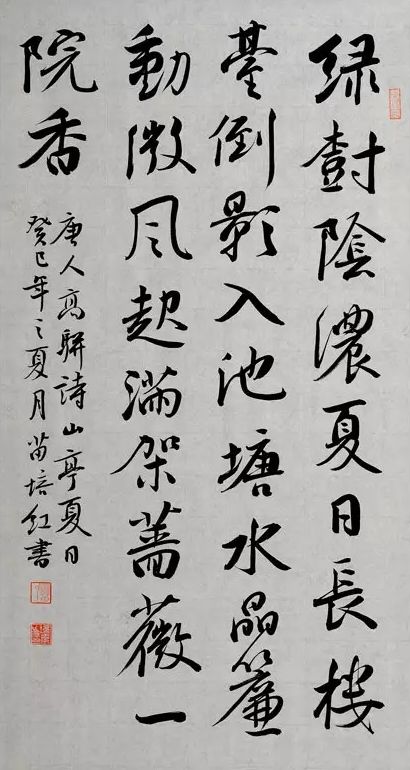 绿樹陰濃夏日長楼
臺倒影入池塘水晶簾
動微风起满架蔷薇一
院香
唐人高駢詩山亭夏日
癸巳年之夏月苗培红書